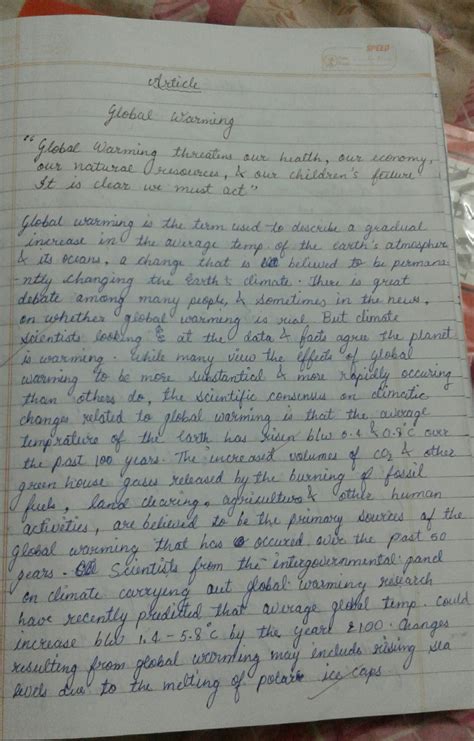 SPEED
Article
Global Warming
"Global Warming threatens our health, our economy,
our natural resources, & our children's future.
It is clear we must act"
Global warming is the term used to describe a gradual
increase in the average temp. of the earth's atmosphere
& its oceans, a change that is believed to be perman-
-ntly changing the Earth's climate. There is great
debate among many people, & sometimes in the news,
on whether global warming is real. But climate
scientists looking at the data & facts agree the planet
is warming. While many view the effects of global
warming to be more substantial & more rapidly occuring
than others do, the scientific consensus on climatic
changes related to global warming is that the average
temprature of the Earth has risen b/w 0.4 & 0.8°C over
the past 100 years. The increased volumes of CO2 & other
green house gases released by the burning of fossil
fuels, land clearing, agriculture & other human
activities, are believed to be the primary sources of the
global warming that has occured over the past 50
years. Scientists from the intergovernmental panel
on climate carrying out global warming research
have recently predicted that average global temp. could
increase b/w 1.4 - 5.8°C by the year 2100. Changes
resulting from global warming may include rising sea
levels due to the melting of polar ice caps